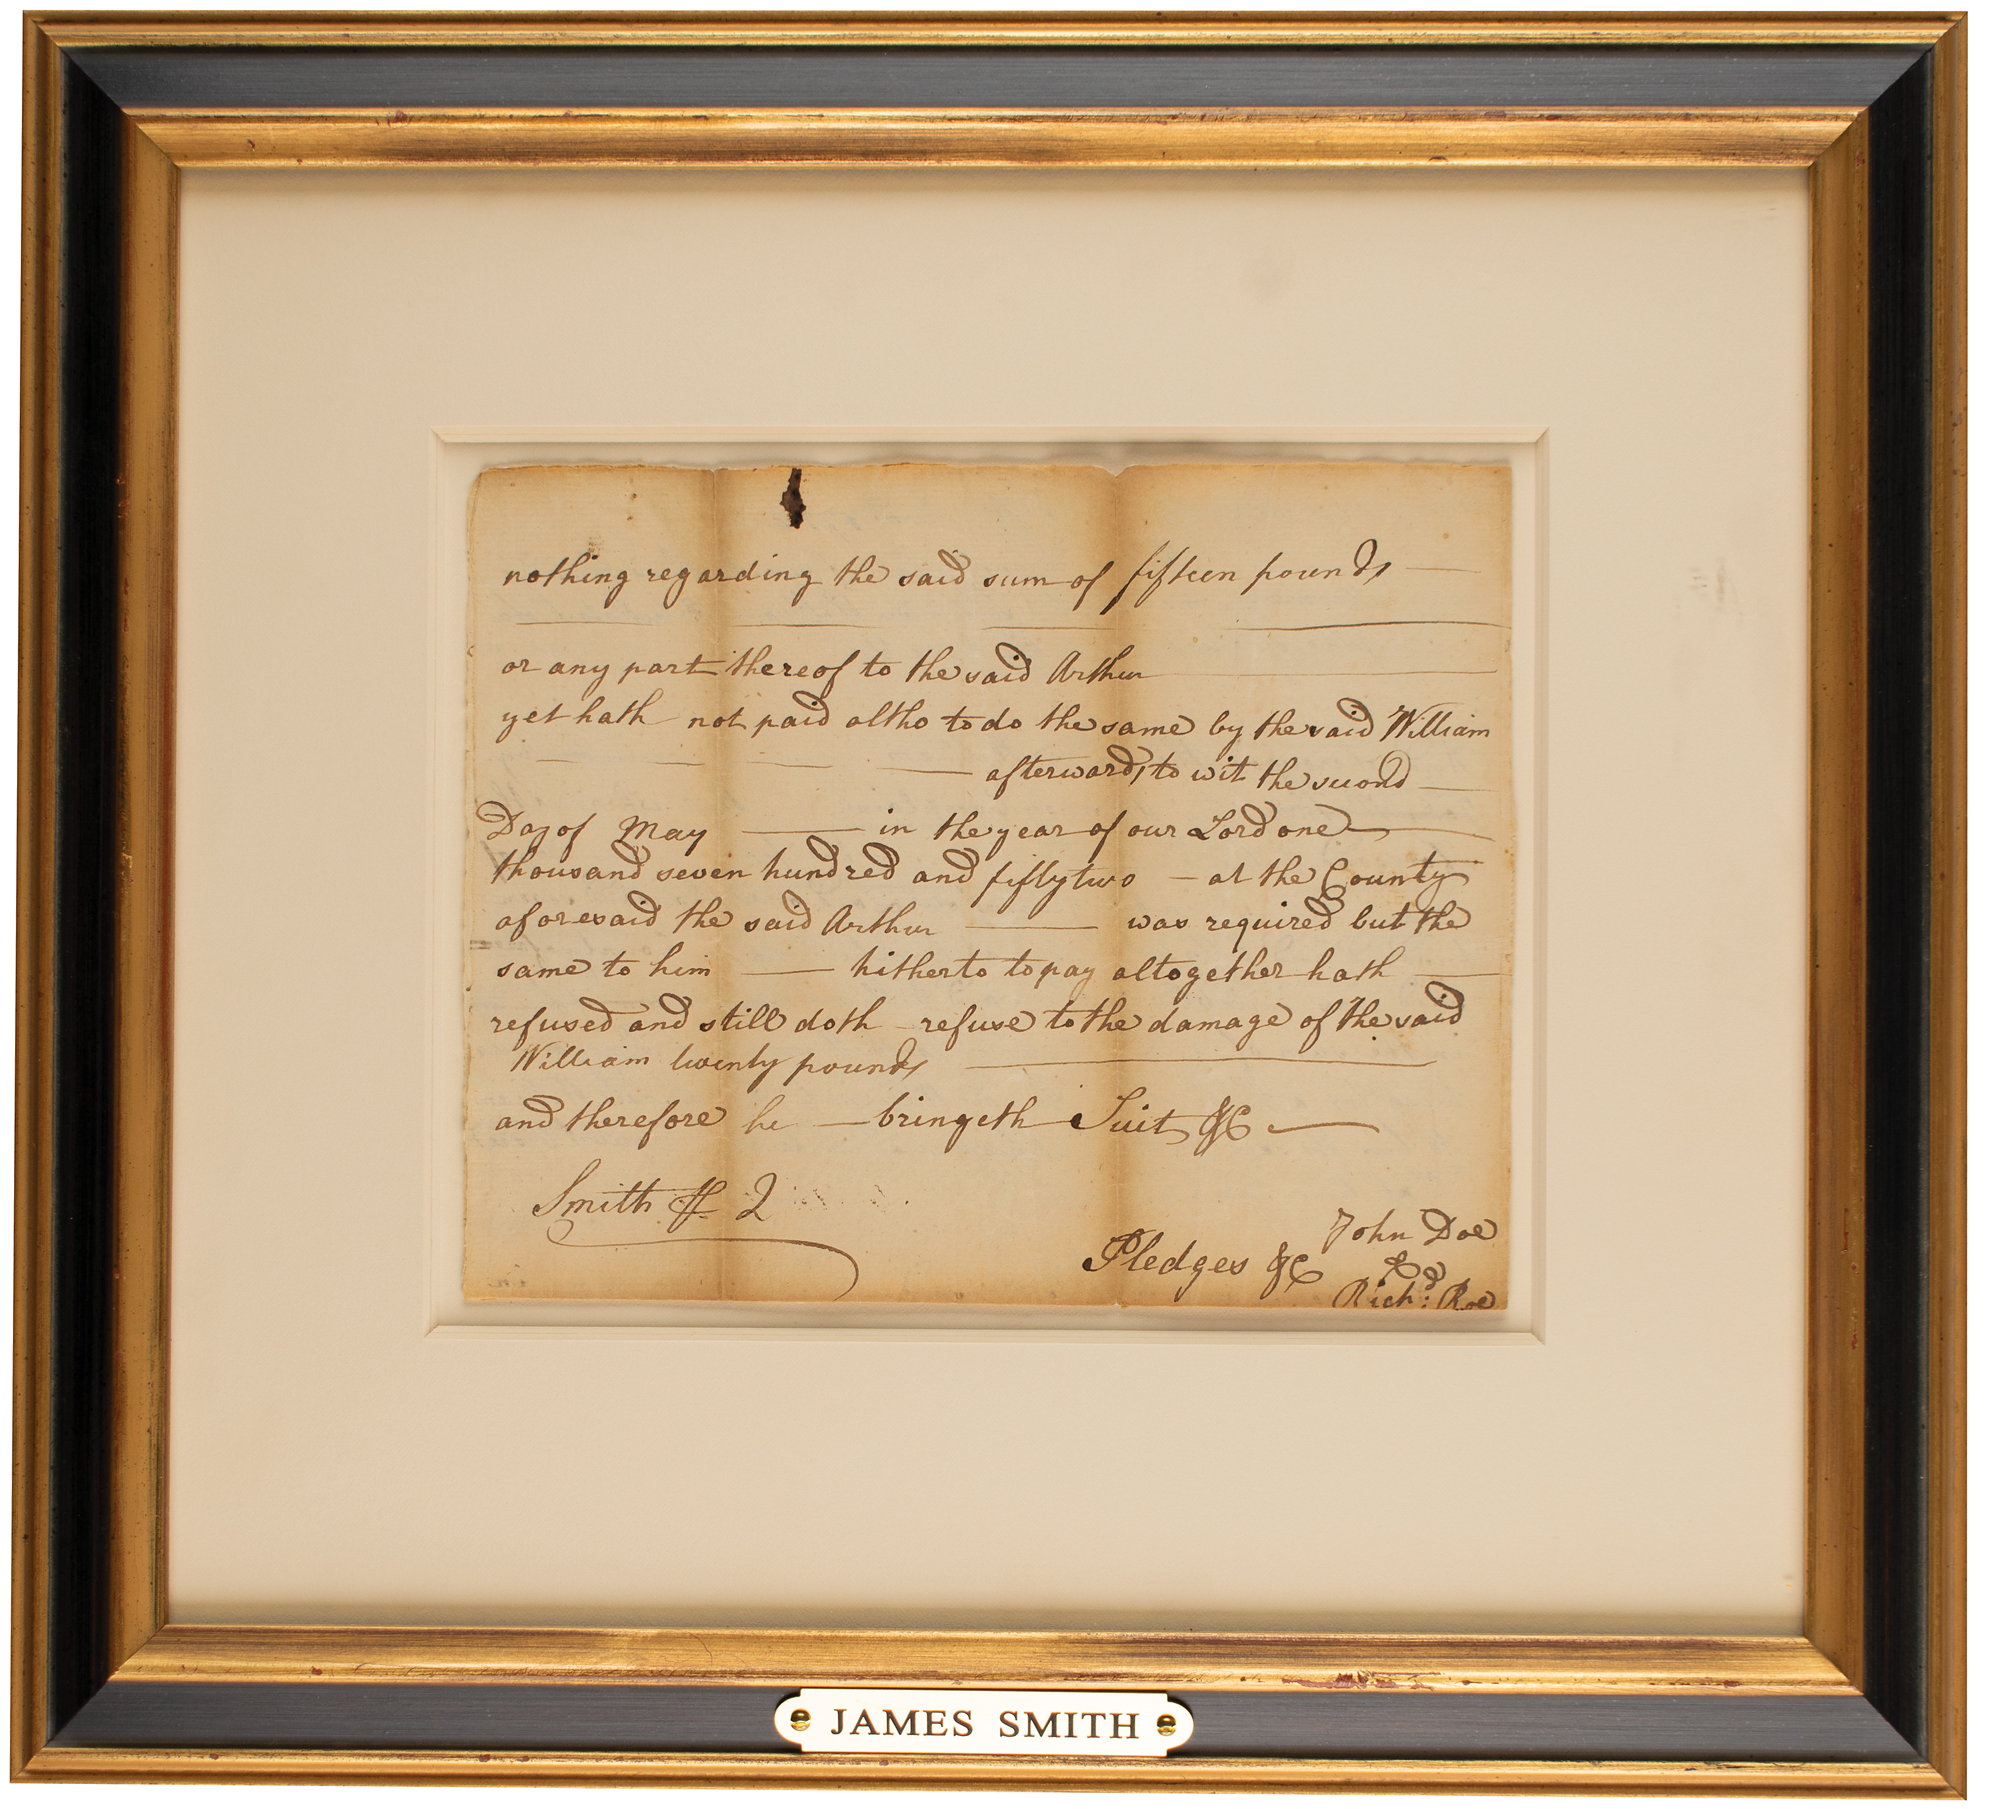 nothing regarding the said sum of fifteen pounds
or any part thereof to the said Arthur
yet hath not paid altho to do the same by the said William
afterwards to wit the second
Day of May in the year of our Lord one
thousand seven hundred and fifty two at the County
aforesaid the said Arthur was required but the
same to him hitherto to pay altogether hath
refused and still doth refuse to the damage of the said
William twenty pounds
and therefore he bringeth Suit &C
Smith Q
John Doe
Pledges &C &
Richd: Roe
JAMES SMITH